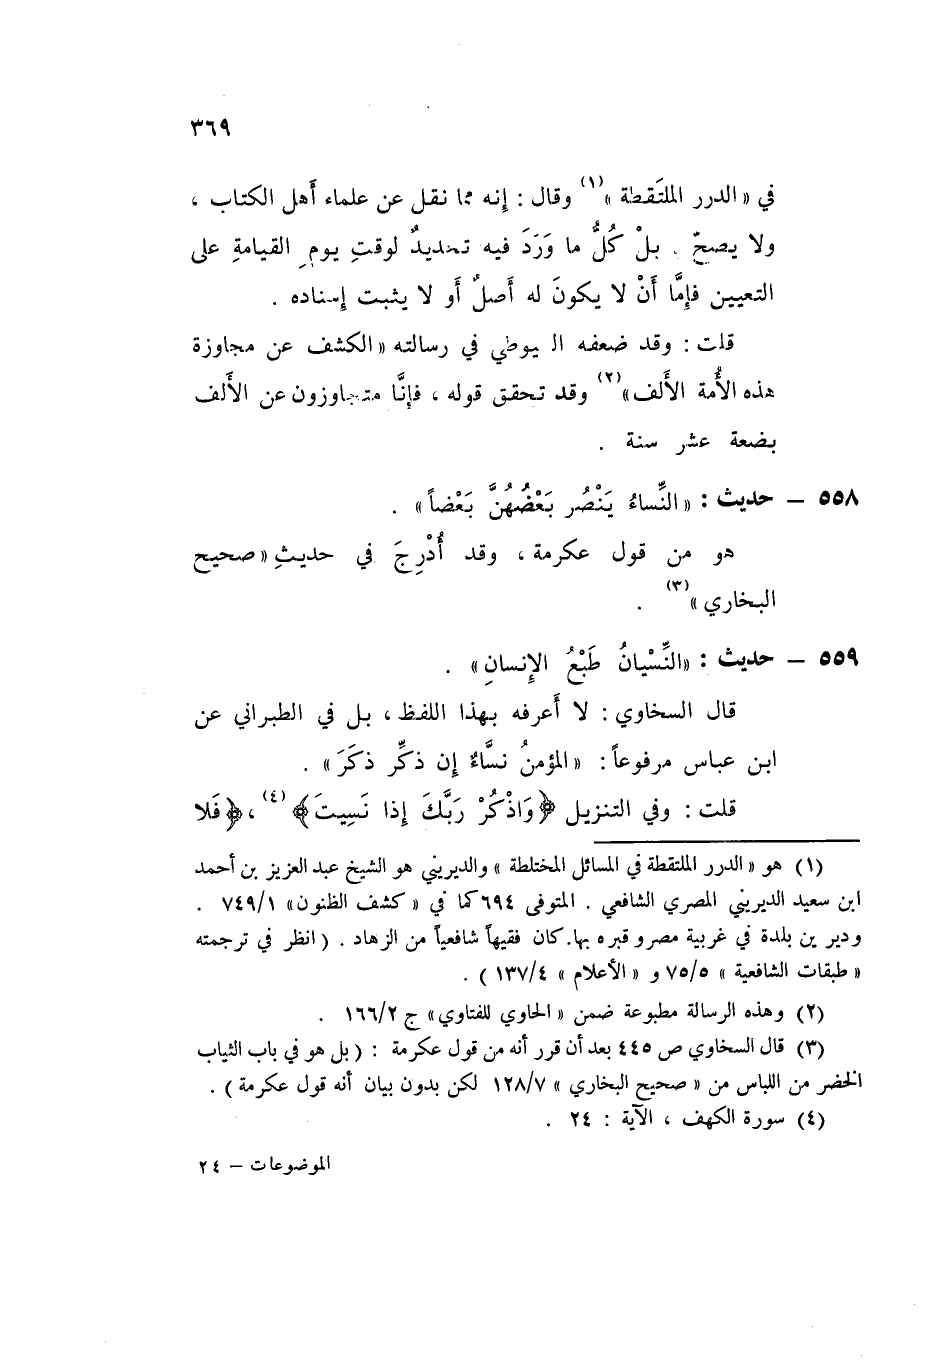 ٣٦٩
في « الدرر الملتَقطة »(١) وقال : إِنه مما نقل عن علماء أَهل الكتاب ،
ولا يصحّ . بلْ كُلُّ ما وَرَدَ فيه تحديدٌ لوقتِ يومِ القيامةِ على
التعيين فإِمَّا أَنْ لا يكونَ له أَصلٌ أَو لا يثبت إِسناده .
قلت : وقد ضعفه السيوطي في رسالته « الكشف عن مجاوزة
هذه الأُمة الأَلف »(٢) وقد تحقق قوله ، فإِنَّا متجاوزون عن الأَلف
بضعة عشر سنة .
٥٥٨ – حديث : « النِّساءُ يَنْصُر بَعْضُهُنَّ بَعْضاً » .
هو من قول عكرمة ، وقد أُدْرِجَ في حديثِ « صحيح
البخاري »(٣) .
٥٥٩ – حديث : « النِّسْيانُ طَبْعُ الإِنسانِ » .
قال السخاوي : لا أَعرفه بهذا اللفظ ، بل في الطبراني عن
ابن عباس مرفوعاً : « المؤمنُ نسَّاءٌ إِن ذكِّر ذكَرَ » .
قلت : وفي التنزيل ﴿وَاذْكُرْ رَبَّكَ إِذا نَسِيتَ﴾(٤) ، ﴿فَلا
(١) هو « الدرر الملتقطة في المسائل المختلطة » والديريني هو الشيخ عبد العزيز بن أحمد
ابن سعيد الديريني المصري الشافعي . المتوفى ٦٩٤ كما في « كشف الظنون » ٧٤٩/١ .
ودير ين بلدة في غربية مصر و قبره بها. كان فقيهاً شافعياً من الزهاد . ( انظر في ترجمته
« طبقات الشافعية » ٧٥/٥ و « الأعلام » ١٣٧/٤ ) .
(٢) وهذه الرسالة مطبوعة ضمن « الحاوي للفتاوي » ج ١٦٦/٢ .
(٣) قال السخاوي ص ٤٤٥ بعد أن قرر أنه من قول عكرمة : ( بل هو في باب الثياب
الخضر من اللباس من « صحيح البخاري » ١٢٨/٧ لكن بدون بيان أنه قول عكرمة ) .
(٤) سورة الكهف ، الآية : ٢٤ .
الموضوعات – ٢٤